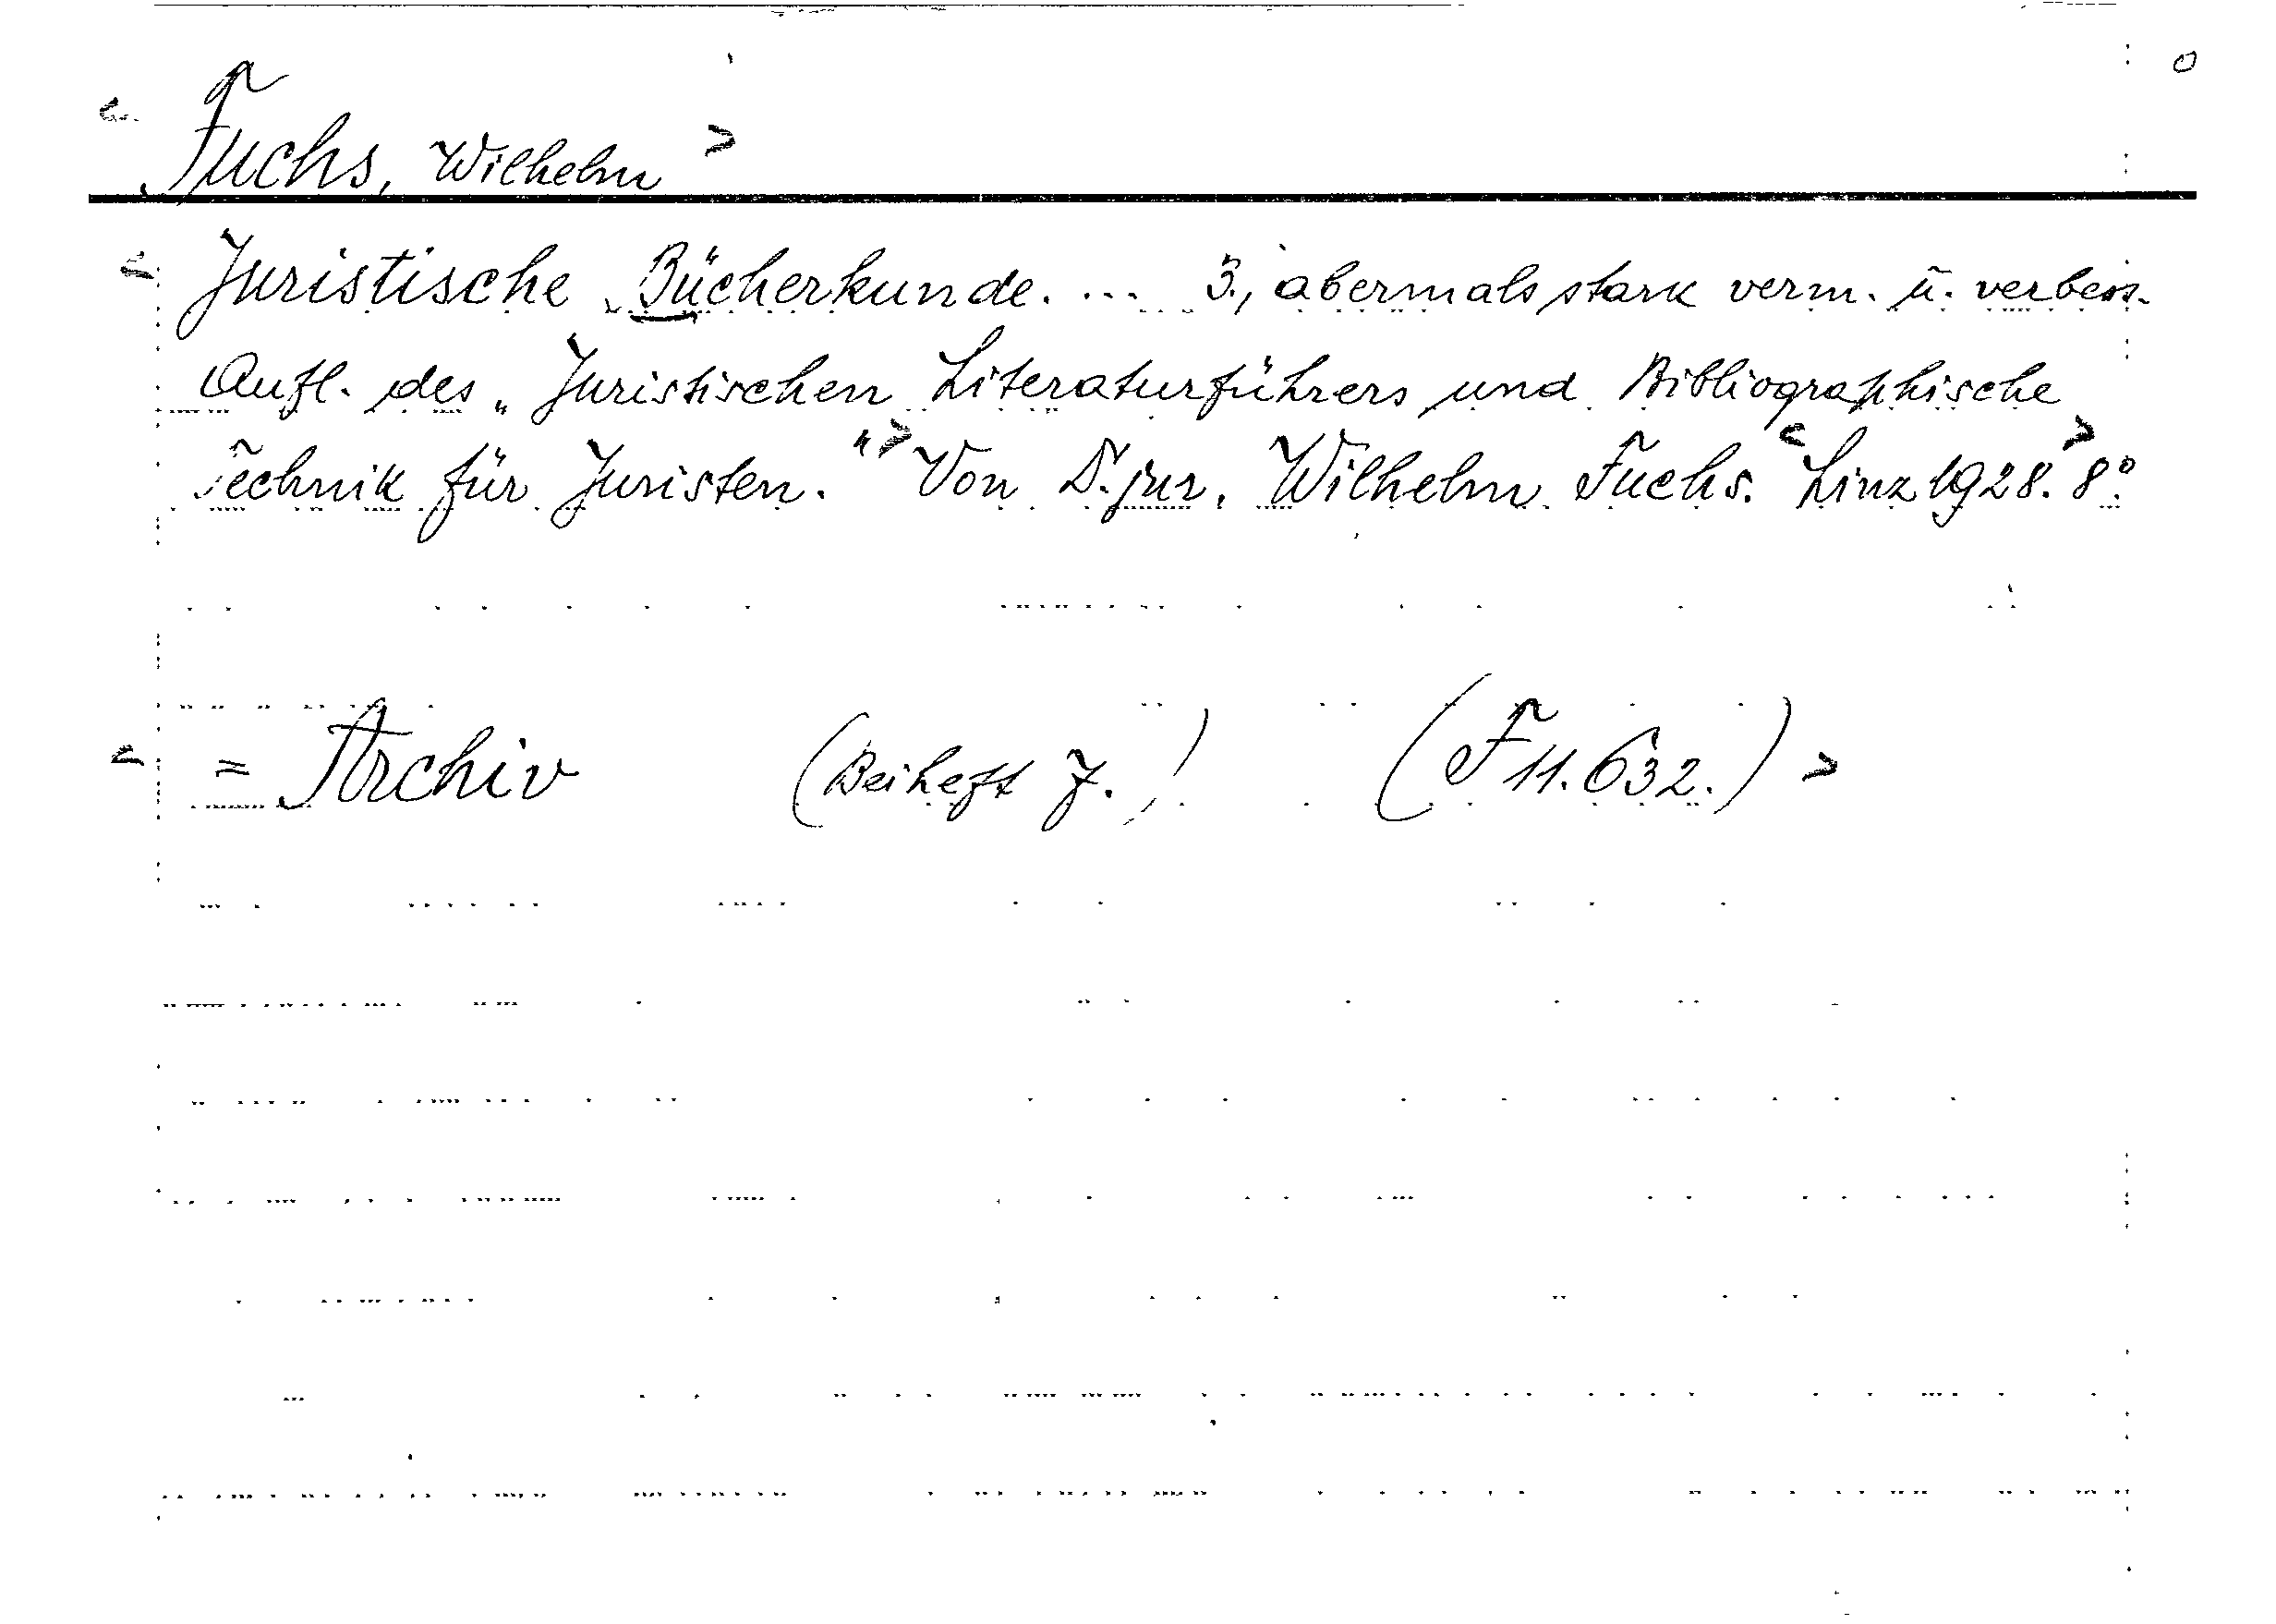 < Fuchs, Wilhelm >
< Juristische Bücherkunde. ... 3., abermals stark verm. u. verbess.
Aufl. des „Juristischen Literaturführers und Bibliographische
Technik für Juristen." > Von D. jur. Wilhelm Fuchs. < Linz 1928. > 8°.
< = Archiv (Beiheft 7.) (F 11.632.) >